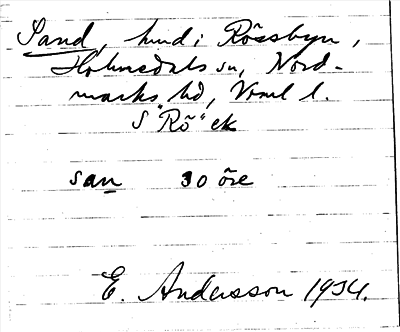 Sand, hmd i Rössbyn,
Holmedals sn, Nord-
marks hd, Vrml l.
S "Rö" ek
san 30 öre
E. Andersson 1934.